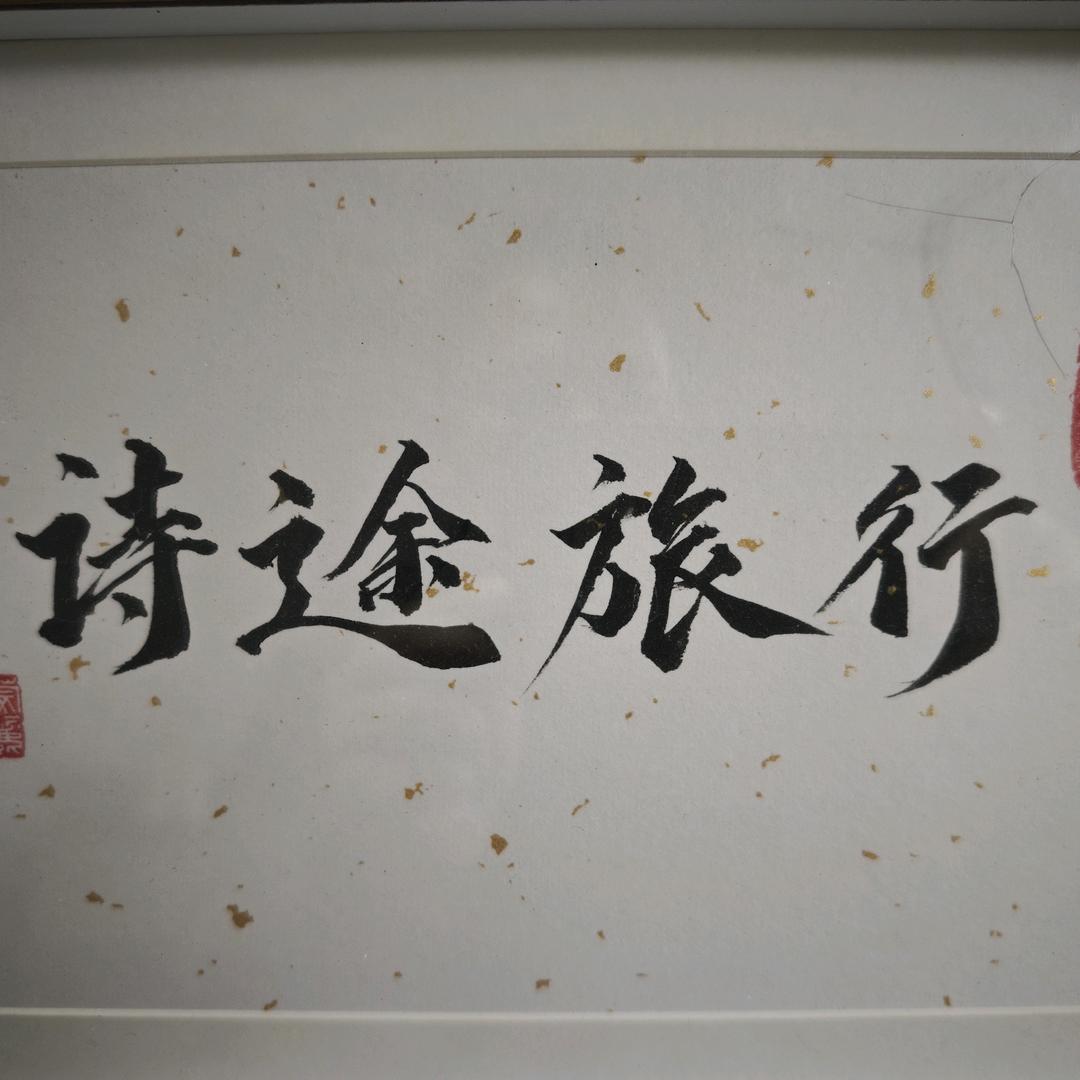 诗途旅行